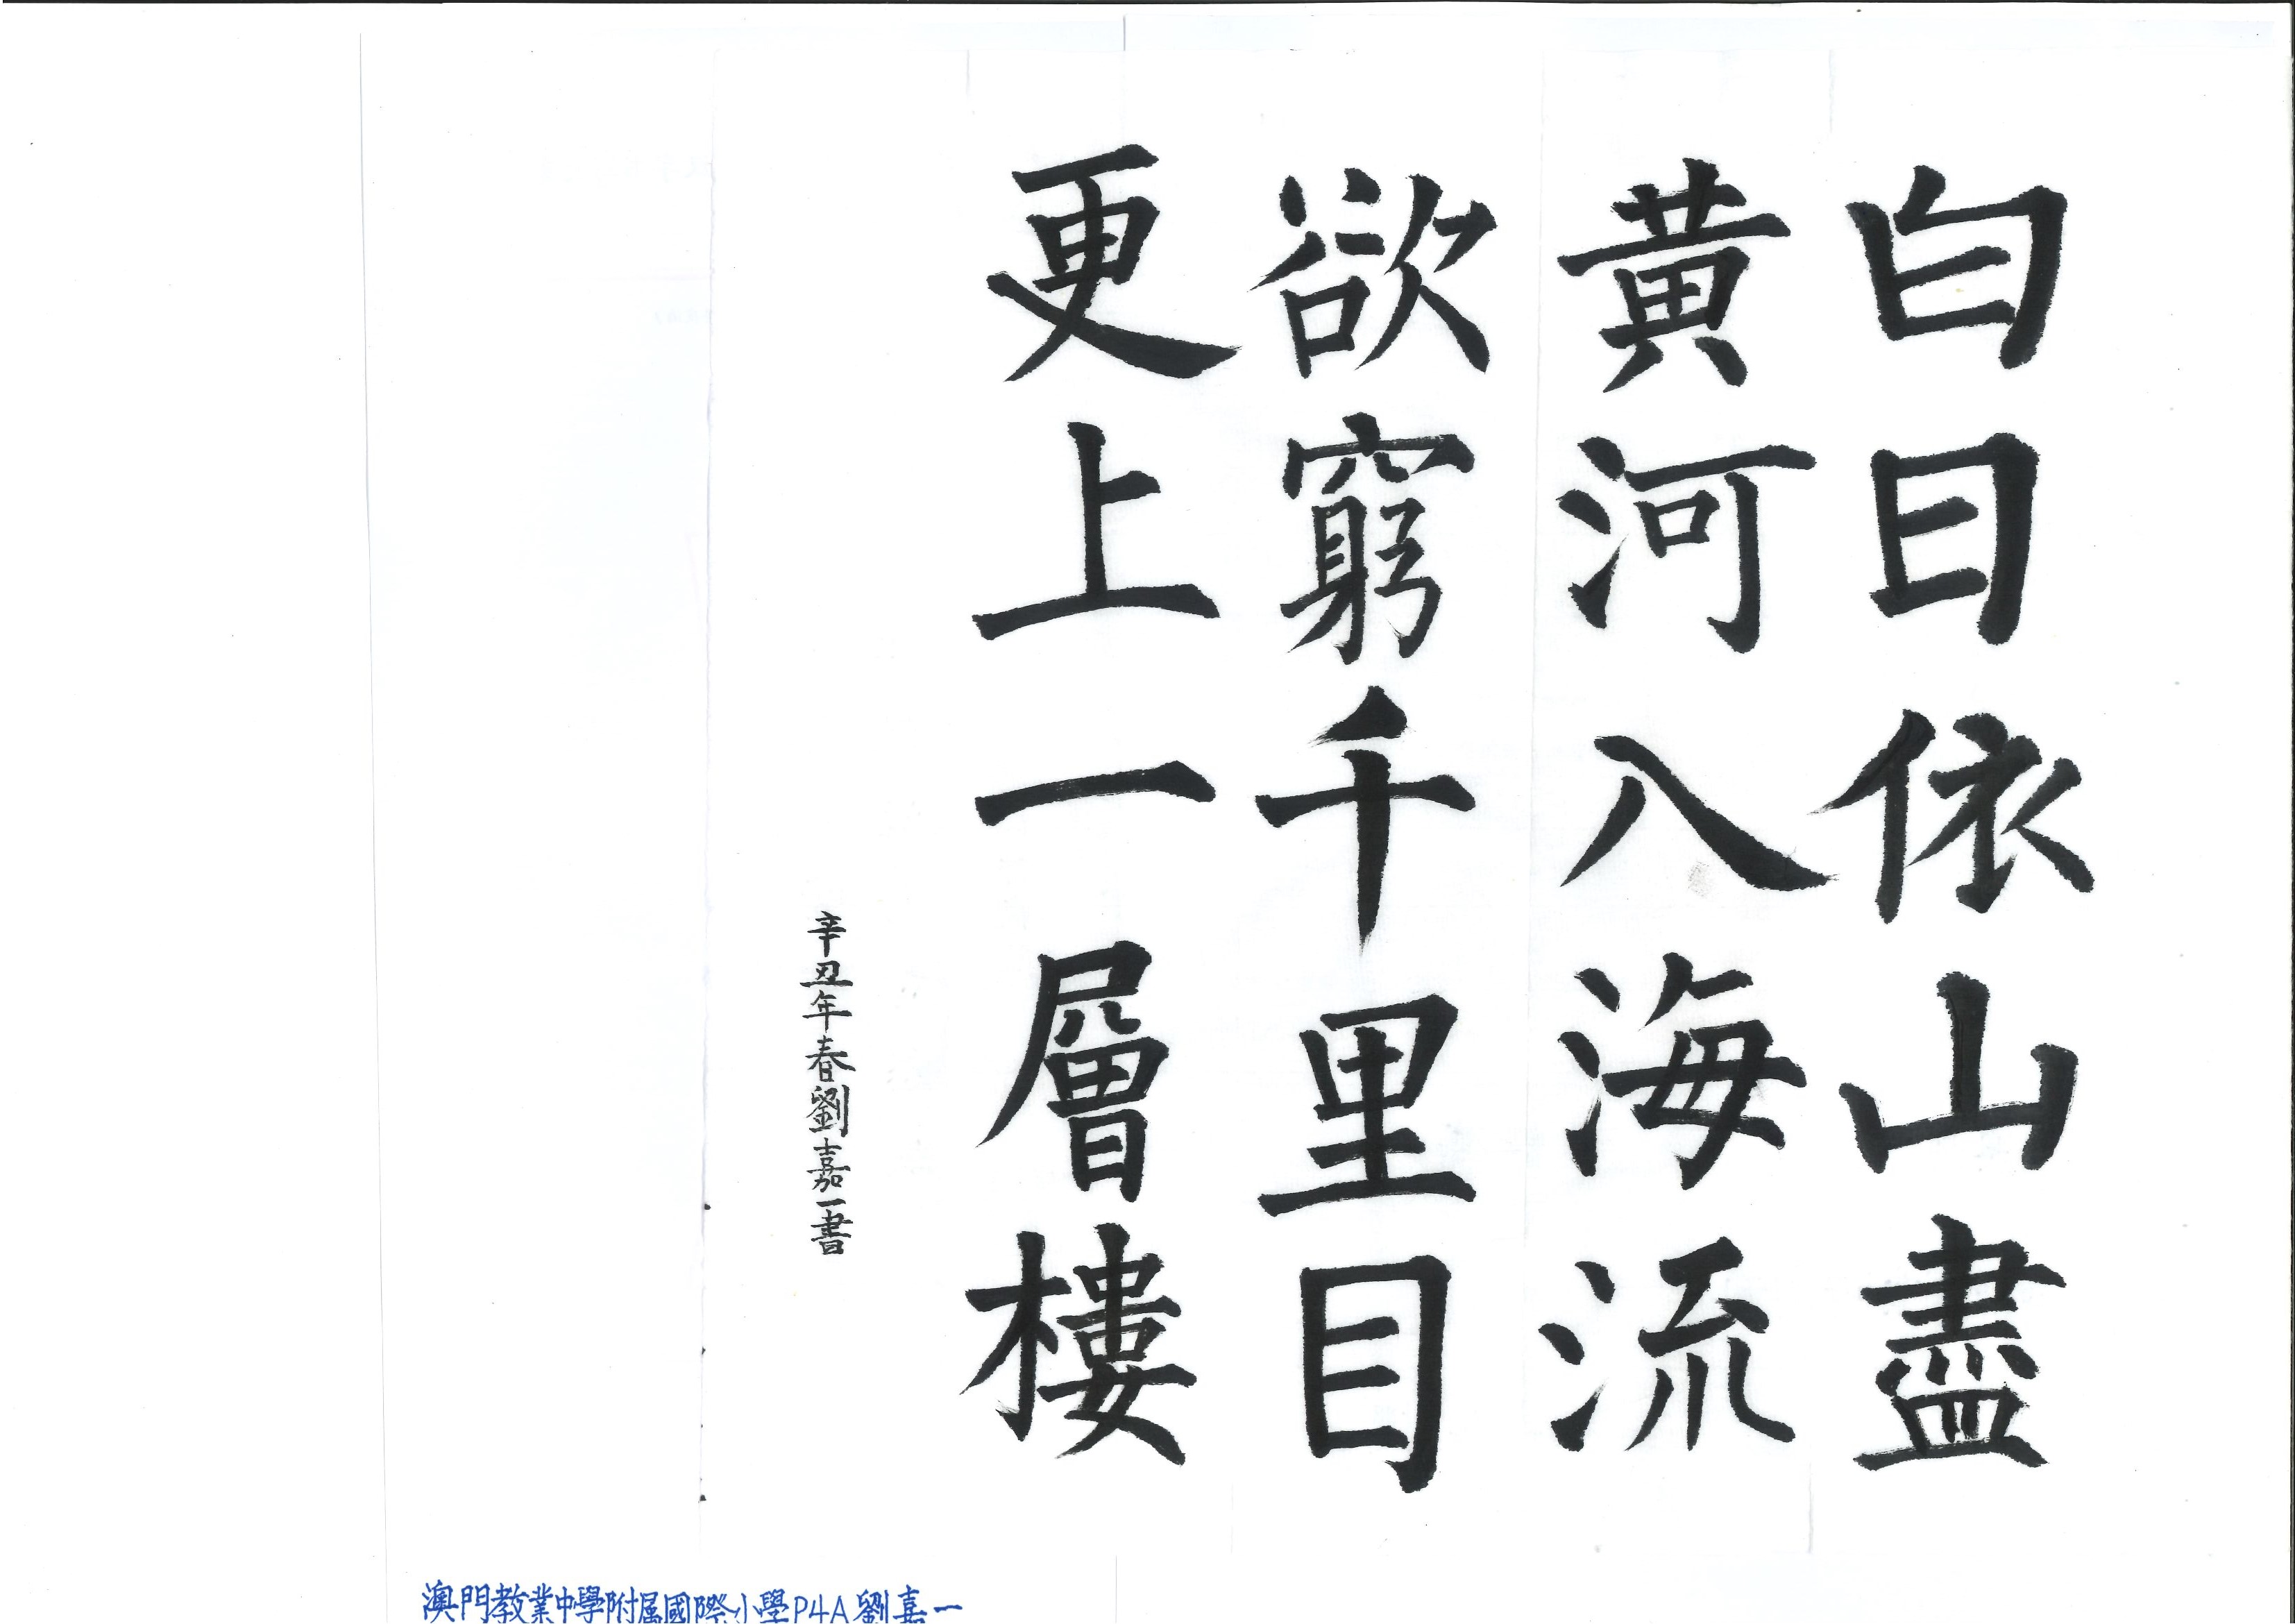 白日依山盡
黃河入海流
欲窮千里目
更上一層樓
辛丑年春劉嘉一書
澳門教業中學附属國際小學P4A劉嘉一